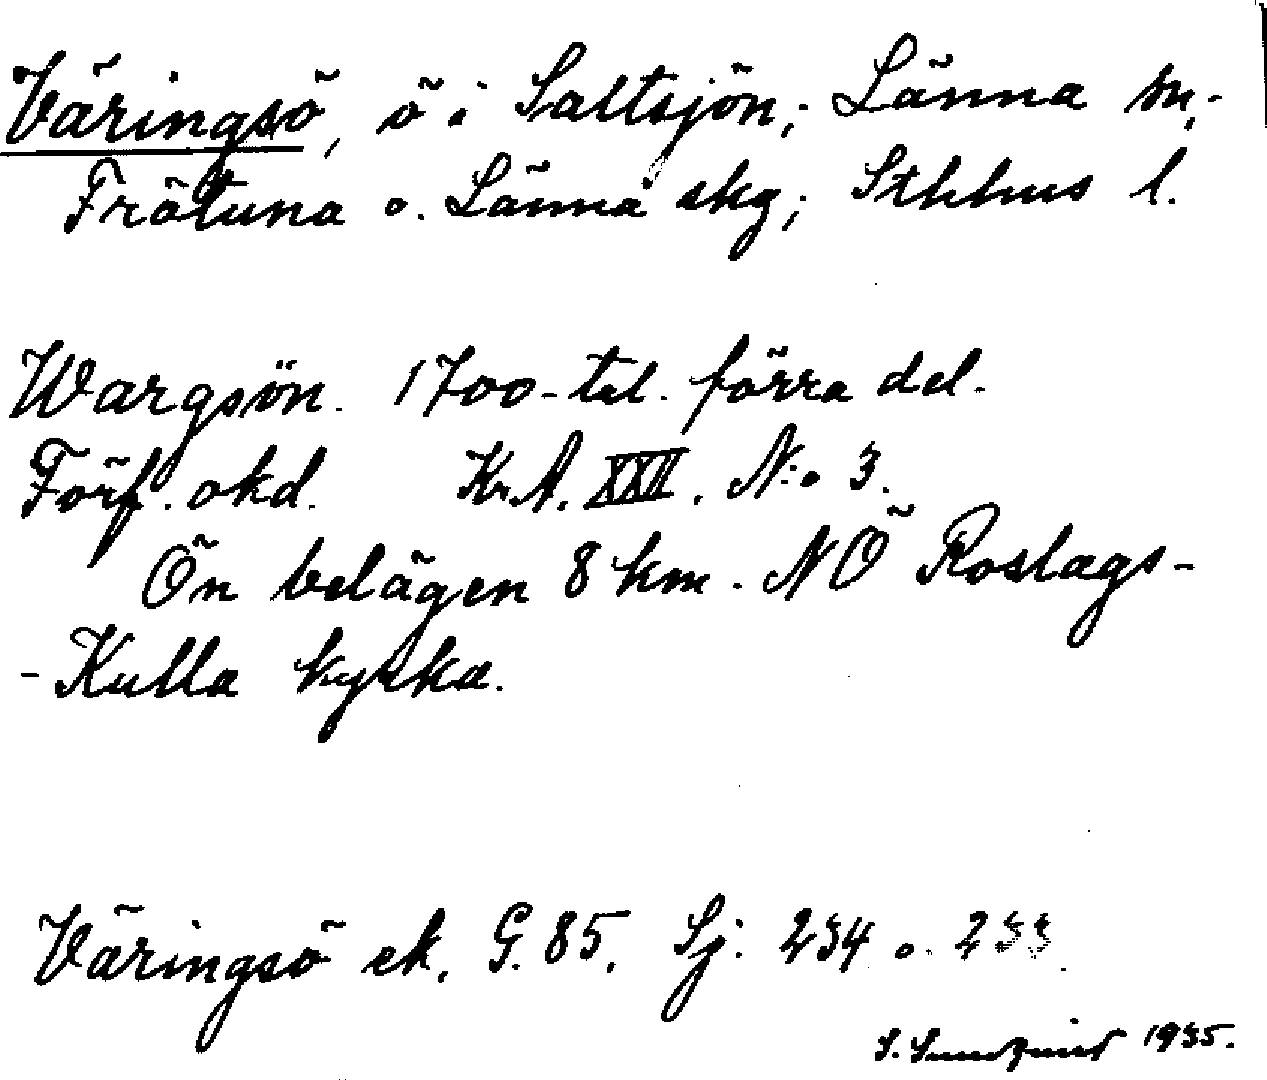 Väringsö, ö i Saltsjön; Länna sn;
Frötuna o. Länna skg; Sthlms l.
Wargsön. 1700-tal. förra del.
Förf. okd. Kr.A. XXII. N:o 3.
Ön belägen 8 km. NÖ Roslags-
-Kulla kyrka.
Väringsö ek. G. 85. Sj. 234 o. 233.
S. Sundqvist 1935.